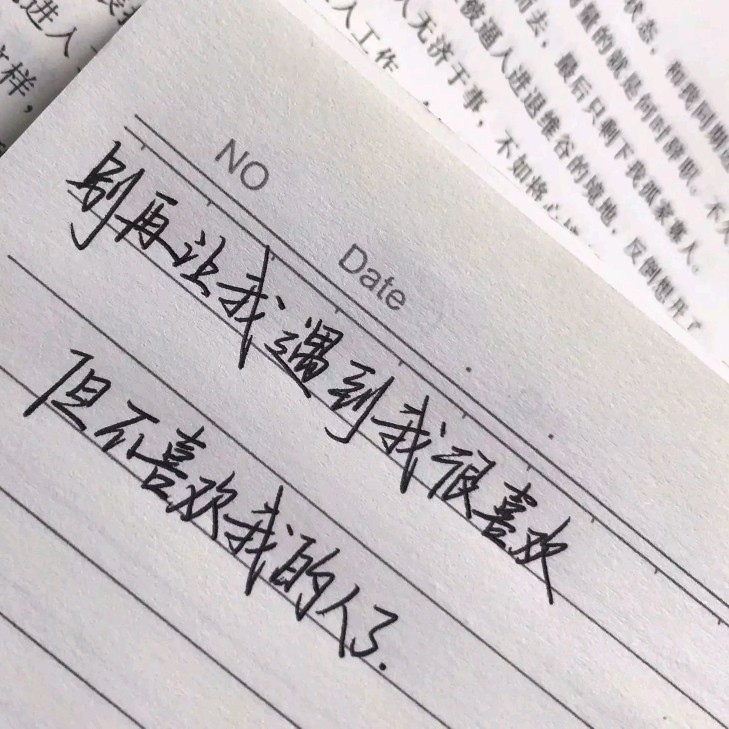 NO
Date
别再让我遇到我很喜欢
但不喜欢我的人了.
状态，和我同期进
量的就是何时辞职。不久
而去，最后只剩下我孤家寡人。
被逼人进退维谷的境地，反倒想开了
人无济于事，不如格心
人工作
进入
这样，